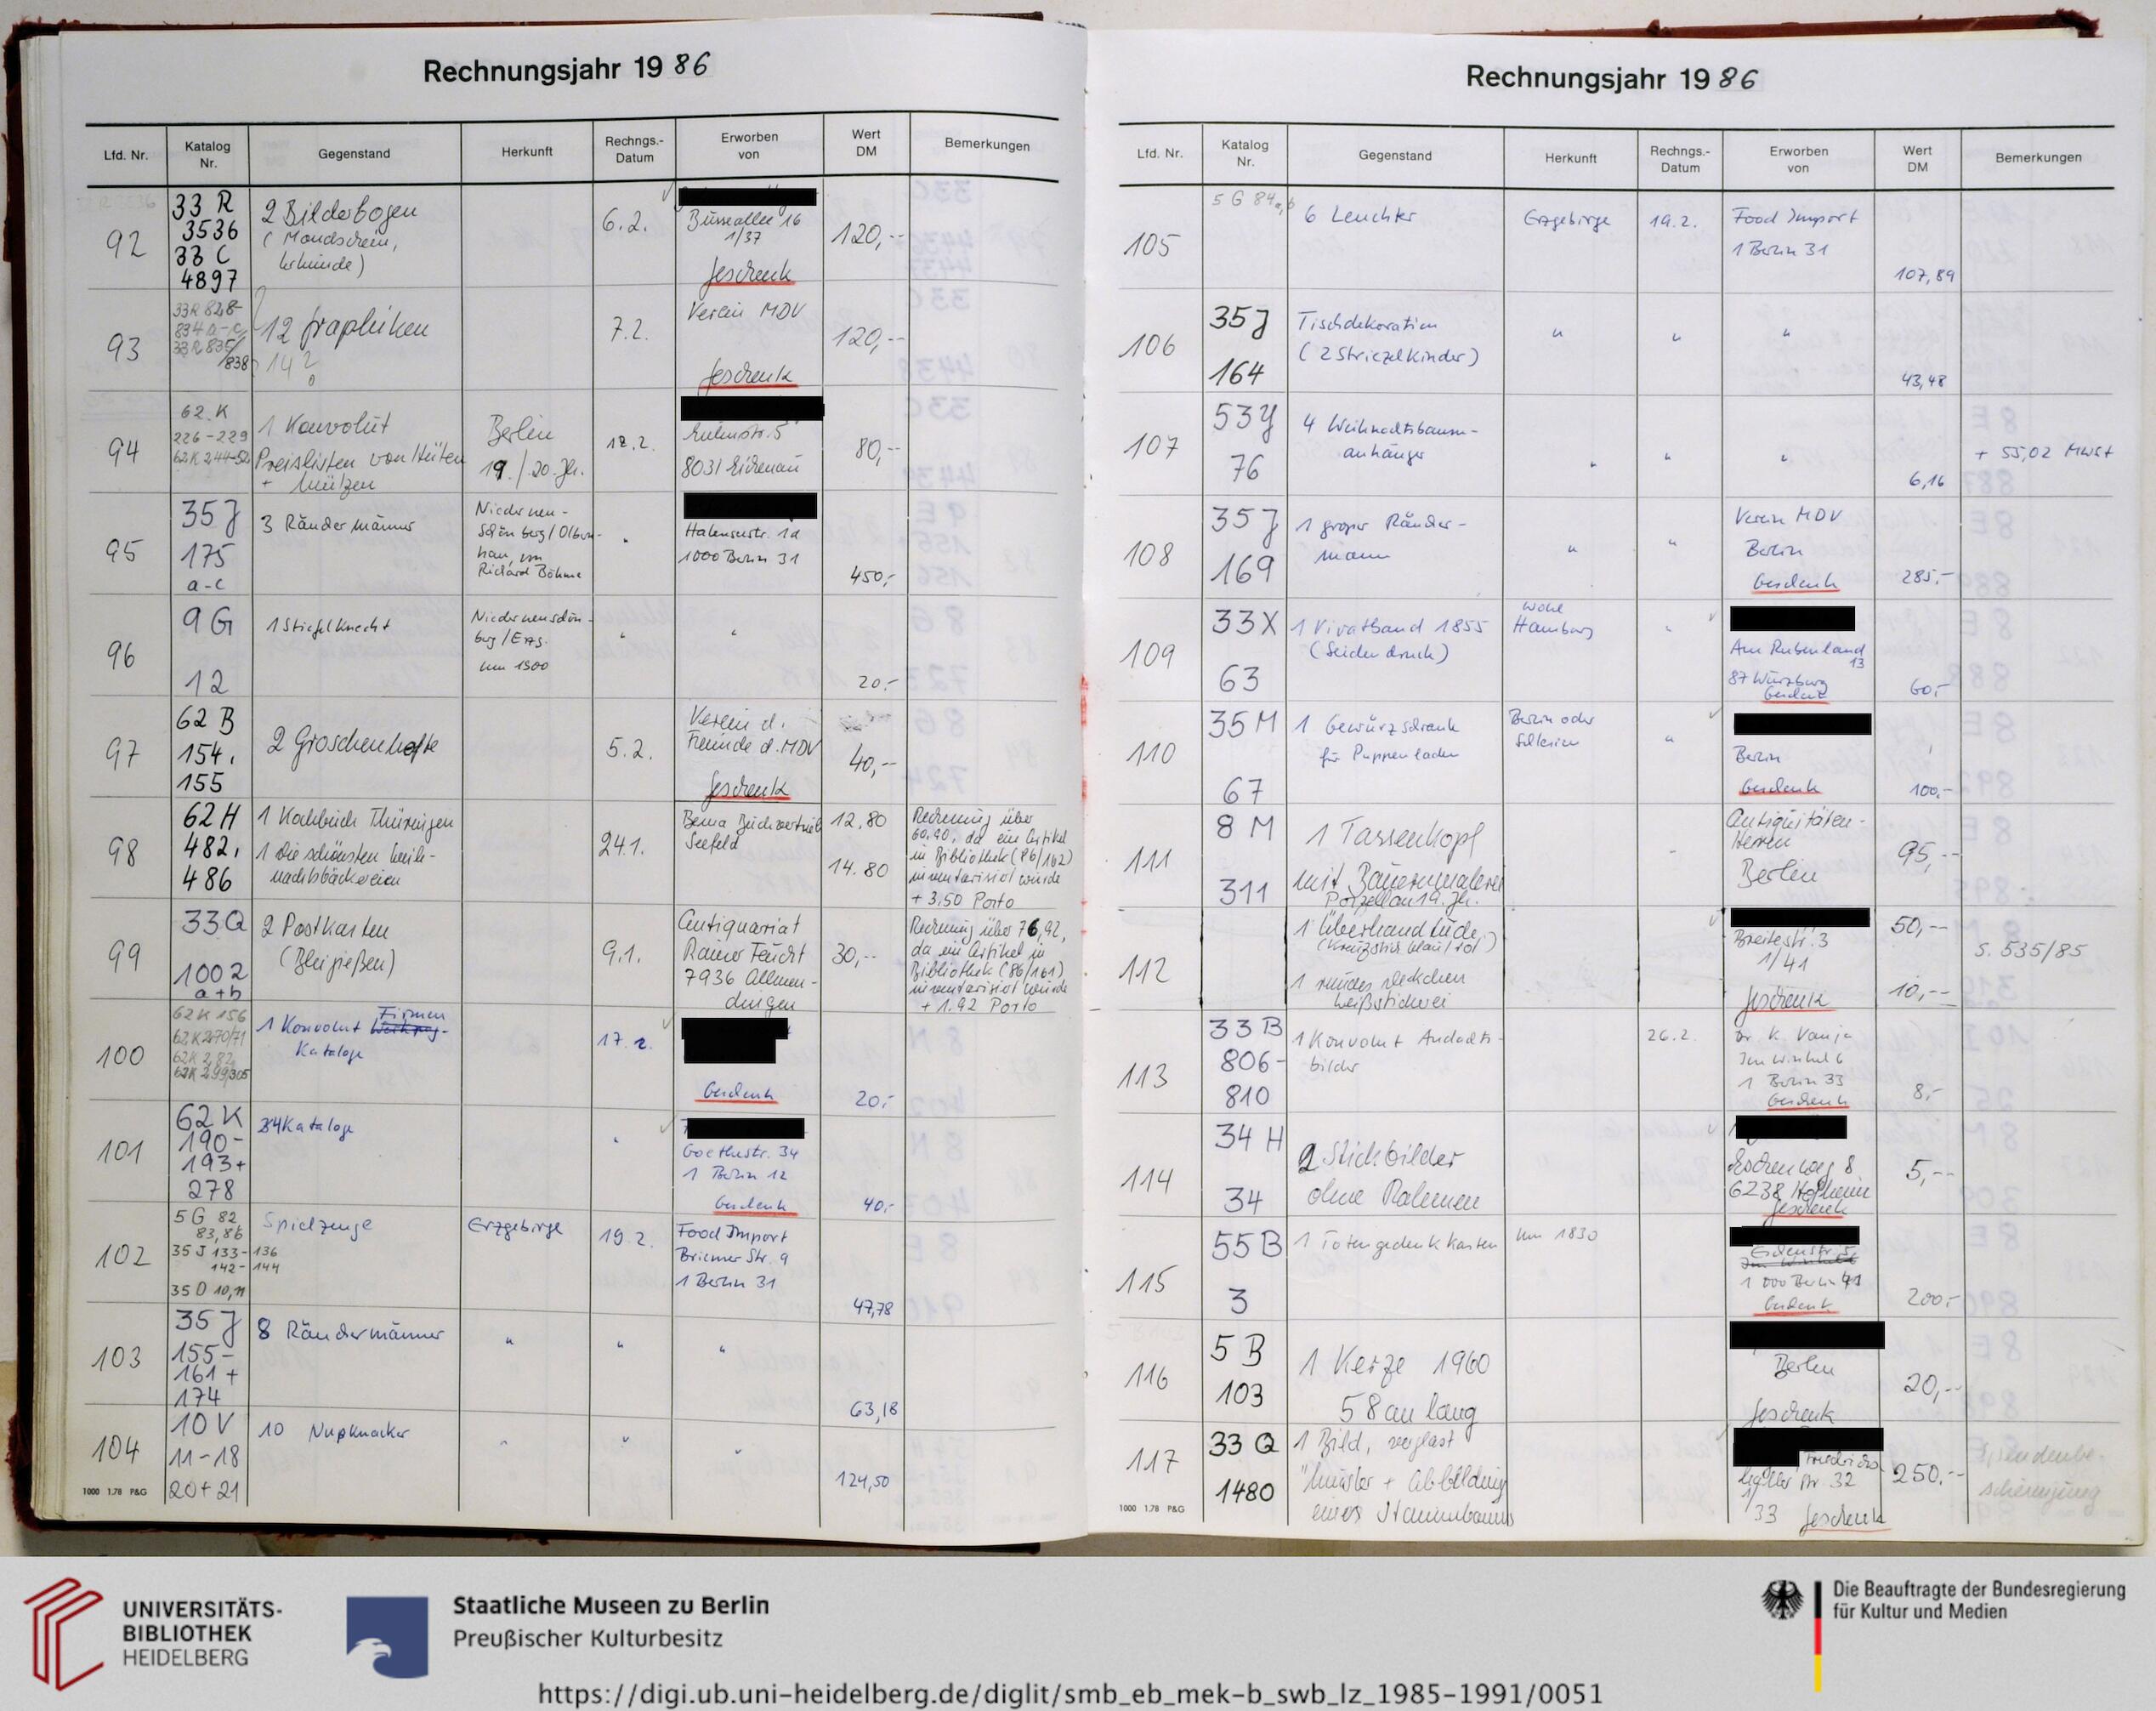 Rechnungsjahr 1986
Lfd. Nr.
Katalog
Nr.
Gegenstand
Herkunft
Rechngs.-
Datum
Erworben
von
Wert
DM
Bemerkungen
92
33 R
3536
33 C
4897
2 Bilderbogen
(Mondschein,
6.2.
Bürseallee 16
1/37
Geschenk
120,--
93
33R 828-
834 a-c,
33R 835/
838
12 Graphiken
14 ?
7.2.
Verein MDV
Geschenk
120,--
94
62 K
226-229
62K 244-52
1 Konvolut
Preislisten von Hüten
+ Mützen
Berlin
19./20. Jh.
12.2.
8031 Eichenau
80,--
95
35 J
175
a-c
3 Räuchermänner
Niederneu-
schönberg/Olbern-
hau, von
Richard Böhme
"
Halenseestr. 1a
1000 Berlin 31
450,-
96
9 G
12
1 Stiefelknecht
Niederneuschön-
berg/Erzg.
um 1900
"
"
20.-
97
62 B
154,
155
2 Groschenhefte
5.2.
Verein d.
Freunde d. MDV
Geschenk
40,--
98
62 H
482,
486
1 Kochbuch Thüringen
1 Die schönsten Weih-
nachtsbäckereien
24.1.
Bema Buchvertrieb
Seefeld
12.80
14.80
Rechnung über
60.90, da ein Artikel
in Bibliothek (86/162)
inventarisiert wurde
+ 3.50 Porto
99
33 Q
1002
a+b
2 Postkarten
(Bleigießen)
9.1.
Antiquariat
Rainer Feucht
7936 Allmen-
dingen
30,--
Rechnung über 76,92,
da ein Artikel in
Bibliothek (86/161)
inventarisiert wurde
+ 1.92 Porto
100
62K 156
62K 270/71
62K 282
62K 299/305
Firmen
1 Konvolut
Kataloge
17.2.
Geschenk
20.-
101
62 K
190-
193+
278
34 Kataloge
"
Goethestr. 34
1 Berlin 12
Geschenk
40.-
102
5 G 82
83, 86
35 J 133-136
142-144
35 D 10,11
Spielzeuge
Erzgebirge
19.2.
Food Import
Bremer Str. 9
1 Berlin 31
47,78
103
35 J
155-
161+
174
8 Räuchermänner
"
"
"
63,18
104
10 V
11-18
20+21
10 Nußknacker
"
"
"
124,50
1000 1.78 P&G
Rechnungsjahr 1986
Lfd. Nr.
Katalog
Nr.
Gegenstand
Herkunft
Rechngs.-
Datum
Erworben
von
Wert
DM
Bemerkungen
105
5 G 84a,b
6 Leuchter
Erzgebirge
19.2.
Food Import
1 Berlin 31
107,89
106
35 J
164
Tischdekoration
(2 Striezelkinder)
"
"
"
43,48
107
53 Y
76
4 Weihnachtsbaum-
anhänger
"
"
"
6,16
+ 55,02 MWSt
108
35 J
169
1 großer Räucher-
mann
"
"
Verein MDV
Berlin
Geschenk
285.-
109
33 X
63
1 Vivatband 1855
(Seidendruck)
wohl
Hamburg
"
Am Rubenland
13
87 Würzburg
Geschenk
60.-
110
35 M
67
1 Gewürzschrank
für Puppenladen
Berlin oder
Schlesien
"
Berlin
Geschenk
100.-
111
8 M
311
1 Tassenkopf
mit Bauernmalerei
Porzellan 19. Jh.
Antiquitäten-
Herren
Berlin
95,--
112
1 Überhandtuch
(Kreuzstich blau/rot)
1 rundes Deckchen
Weißstickerei
Breitestr. 3
1/41
Geschenk
50,--
10,--
s. 535/85
113
33 B
806-
810
1 Konvolut Andachts-
bilder
26.2.
Dr. K. Vanja
Im Winkel 6
1 Berlin 33
Geschenk
8,-
114
34 H
34
2 Stickbilder
ohne Rahmen
Eschenweg 8
6238 Hofheim
Geschenk
5,--
115
55 B
3
1 Totengedenkkasten
um 1830
1000 Berlin 41
Geschenk
200.-
116
5 B
103
1 Kerze 1960
58 cm lang
Berlin
Geschenk
20,--
117
33 Q
1480
1 Bild, verglast
"Muster + Abbildung
eines Stammbaums
Friedrichs-
32
1/33 Geschenk
250.--
Spendenbe-
scheinigung
1000 1.78 P&G
UNIVERSITÄTS-
BIBLIOTHEK
HEIDELBERG
Staatliche Museen zu Berlin
Preußischer Kulturbesitz
Die Beauftragte der Bundesregierung
für Kultur und Medien
https://digi.ub.uni-heidelberg.de/diglit/smb_eb_mek-b_swb_lz_1985-1991/0051